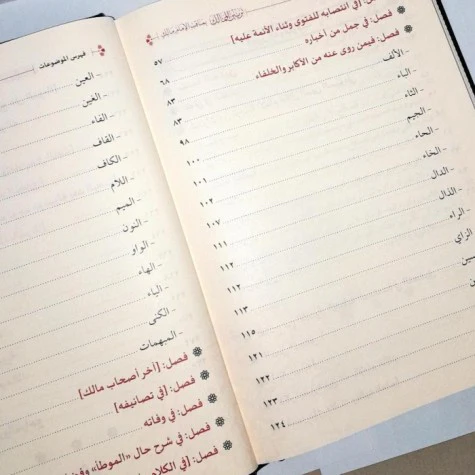 تزيين الممالك بمناقب الإمام مالك
فصل: [في انتصابه للفتوى وثناء الأئمة عليه] ٥٧
فصل: في جمل من أخباره ٦٨
فصل: فيمن روى عنه من الأكابر والخلفاء ٨٣
- الألف ٨٣
- الباء ٩٨
- الثاء ١٠٠
- الجيم ١٠١
- الحاء ١٠٢
- الخاء ١٠٧
- الدال ١١١
- الذال ١١٢
- الراء ١١٢
- الزاي ١١٣
١١٥
١٢١
١٢٢
١٢٣
١٢٤
فهرس الموضوعات
- العين
- الغين
- الفاء
- القاف
- الكاف
- اللام
- الميم
- النون
- الواو
- الهاء
- الياء
- الكنى
- المبهمات
فصل: [آخر أصحاب مالك]
فصل: [في تصانيفه]
فصل: في وفاته
فصل: في شرح حال «الموطأ»
فصل: [في الكلام